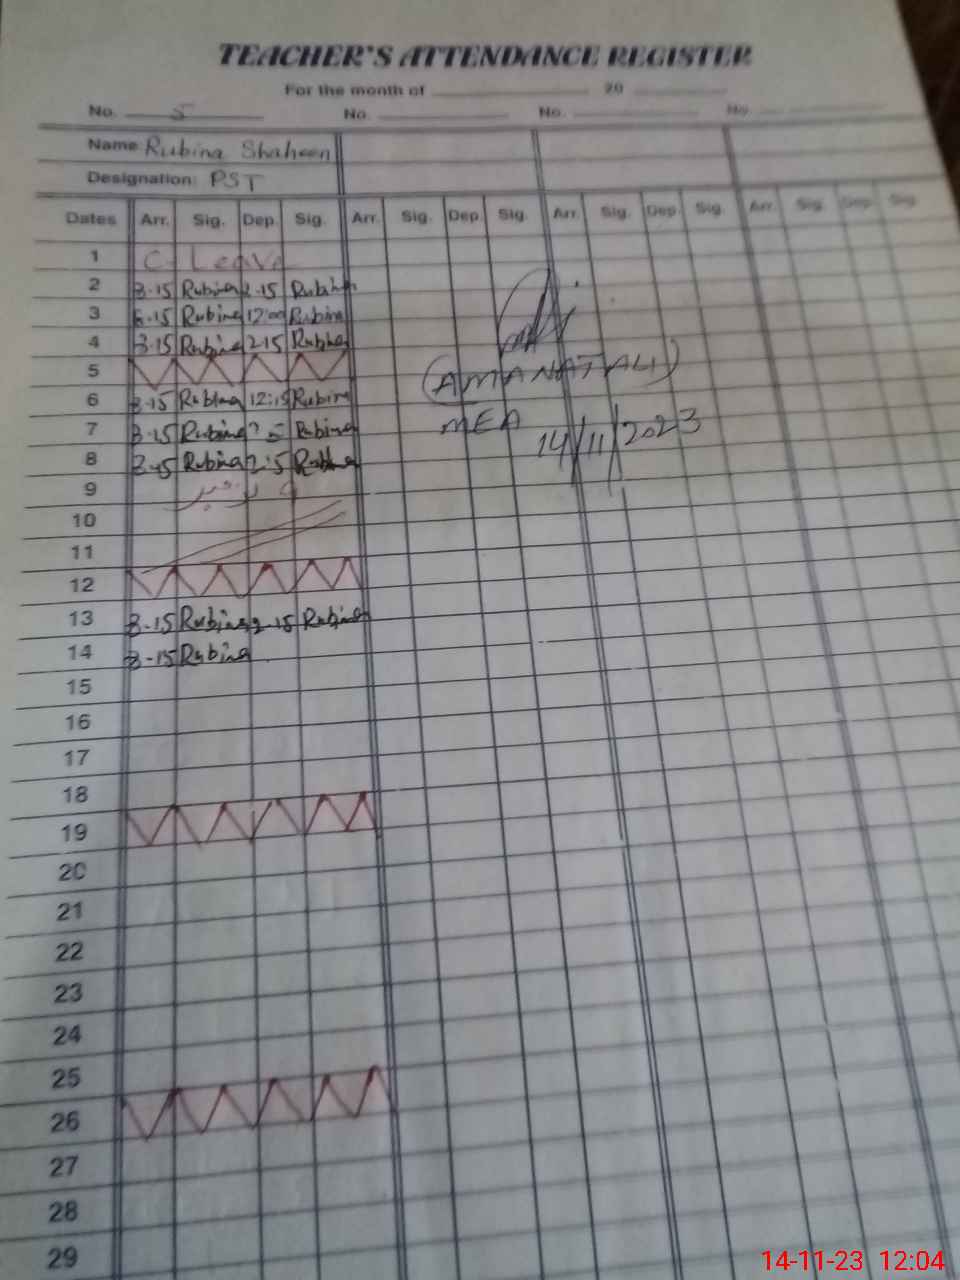 TEACHER'S ATTENDANCE REGISTER
For the month of 20
No. 5 No. No. No.
Name Rubina Shaheen
Designation: PST
Dates Arr. Sig. Dep. Sig. Arr. Sig. Dep Sig. Arr. Sig. Dep. Sig. Arr. Sig. Dep. Sig.
1 C- Leave
2 8-15 Rubina 2-15 Rubina
3 8-15 Rubina 12:00 Rubina
4 8-15 Rubina 2:15 Rubina
5
6 8-15 Rubina 12:15 Rubina
(AMANAT ALI)
7 8-15 Rubina Rubina
MEA 14/11/2023
8 8-15 Rubina 2:15 Rubina
9
10
11
12
13 8-15 Rubina 2-15 Rubina
14 8-15 Rubina
15
16
17
18
19
20
21
22
23
24
25
26
27
28
29
14-11-23 12:04